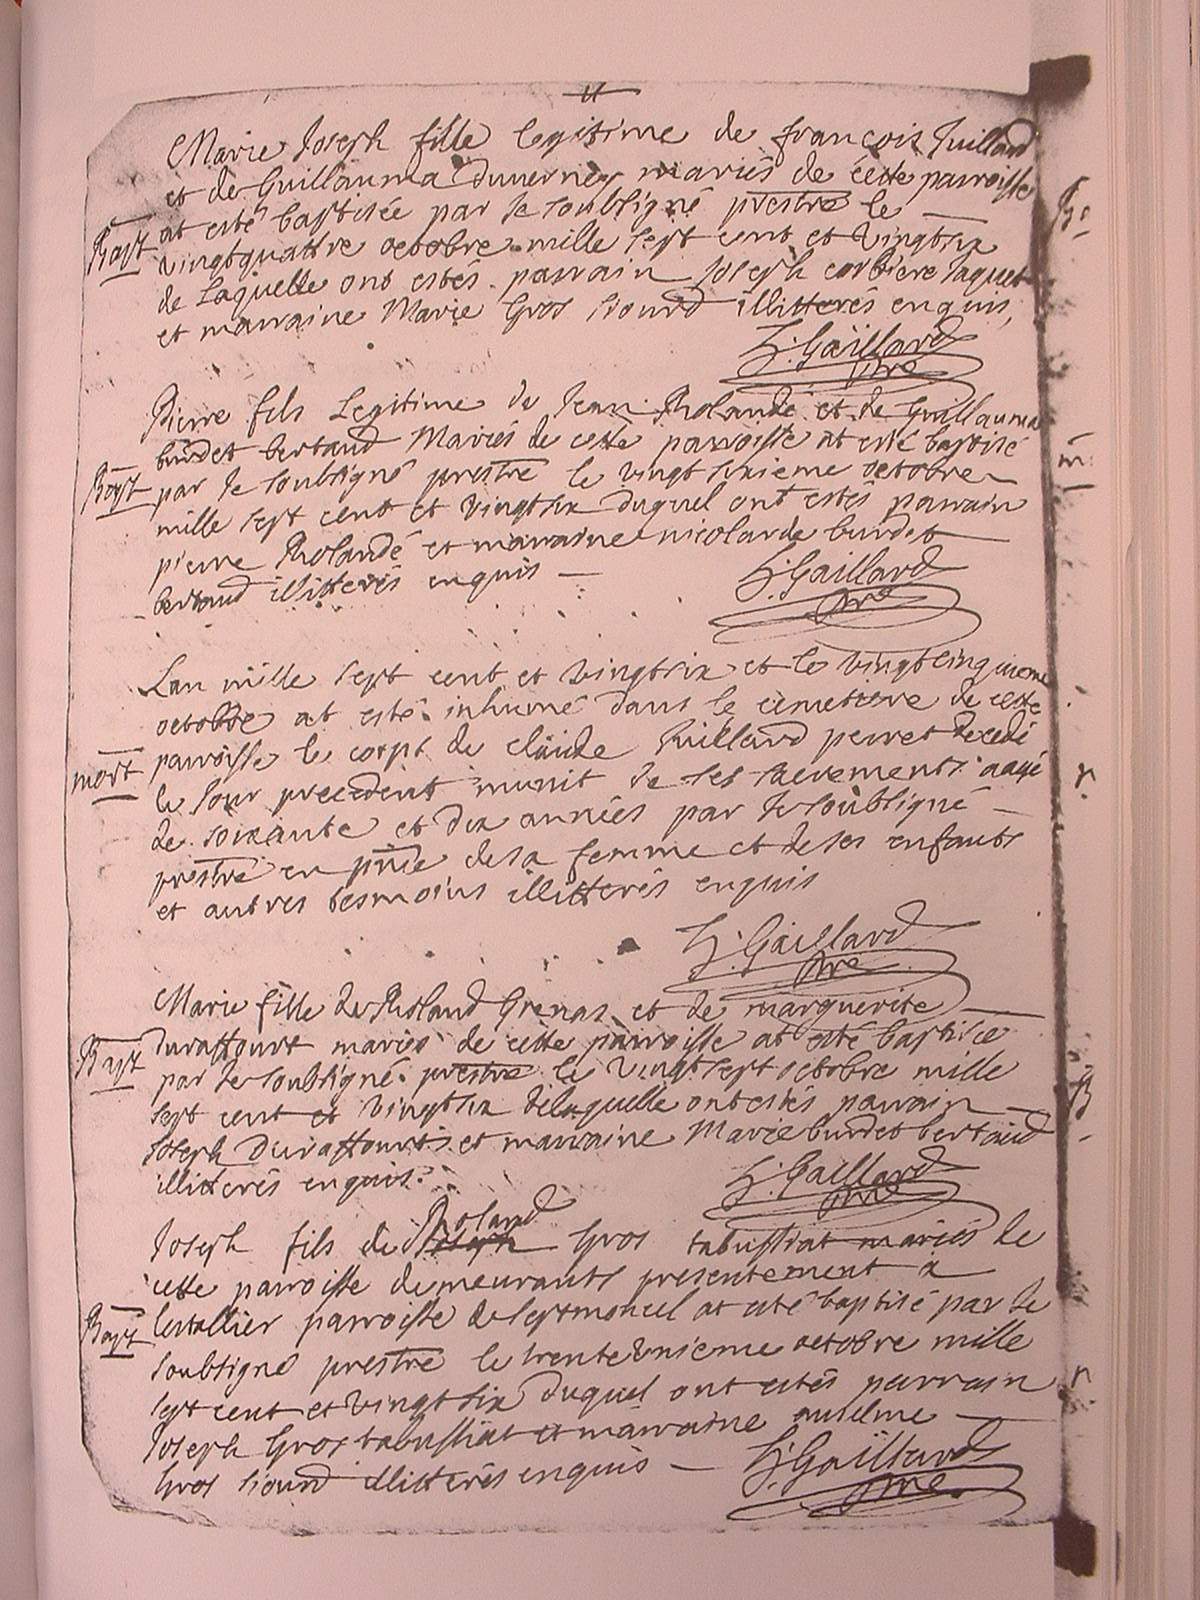 11
Marie Joseph fille legitime de françois Juillard
et de Guillauma Duverney mariés de cette parroisse
Bapt at esté baptisée par le soubsigné prestre le
vingtquattre octobre mille sept cent et vingtsix
de laquelle ont estés parrain Joseph corbiere Jaquet
et marraine Marie Gros siourd illitterés enquis,
h: Gaillard
pre
Pierre fils Legitime de Jean Rolandé et de Guillauma
burdet bertaud Mariés de cette parroisse at esté baptisé
Bapt par le soubsigné prestre le vingt sixieme octobre
mille sept cent et vingtsix duquel ont estés parrain
pierre Rolandé et marraine nicolarde burdet
bertaud illitterés enquis
h: Gaillard
pre
Lan mille sept cent et vingtsix et le vingtcinquieme
octobre at esté inhumé dans le cemetiere de cette
parroisse le corps de claude Juillard perret decedé
mort le Jour precedent munit de ses sacrements aagé
de soixante et dix années par le soubsigné
prestre en pnce de sa femme et de ses enfants
et autres tesmoins illitterés enquis
h: Gaillard
pre
Marie fille de Roland Grenas et de marguerite
Duraffourt mariés de cette parroisse at esté baptisée
Bapt par le soubsigné prestre le vingtsept octobre mille
sept cent et vingtsix delaquelle ont estés parrain
Joseph Duraffourt et marraine Marie burdet bertaud
illitterés enquis
h: Gaillard
pre
Roland
Joseph fils de Joseph Gros tabussiat mariés de
cette parroisse demeurants presentement a
Bapt Lestallier parroisse de septmoncel at esté baptisé par le
soubsigné prestre le trente unieme octobre mille
sept cent et vingtsix duquel ont estés parrain
Joseph Gros tabussiat et marraine anselme
Gros siourd illitterés enquis
h: Gaillard
pre